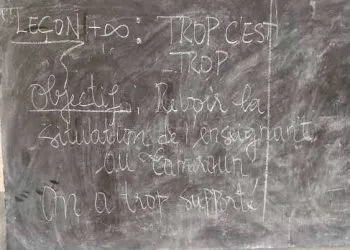 LEÇON +∞ : TROP C'EST
TROP
Objectif : Revoir la
situation de l'enseignant
au Cameroun
On a trop supporté